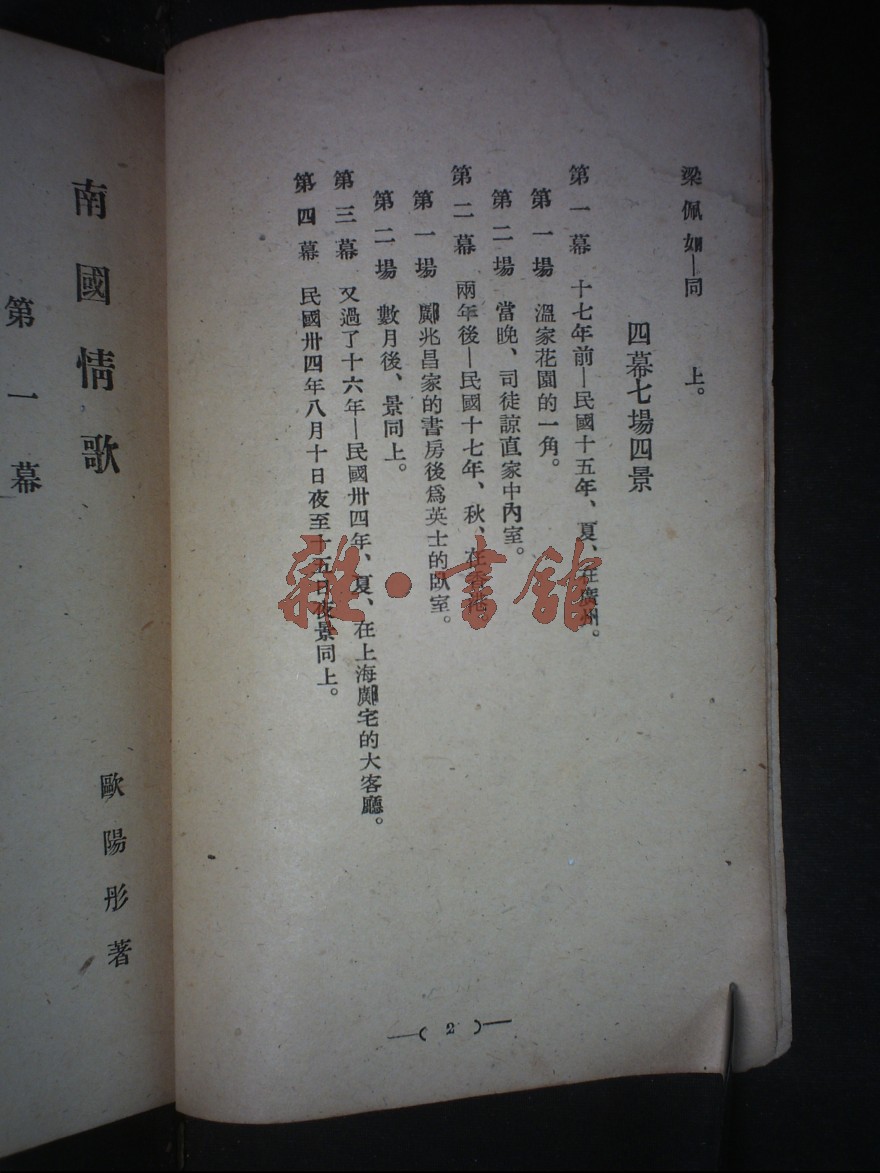 梁佩如—同　上。
四幕七場四景
第一幕　十七年前—民國十五年、夏、在廣州。
第一場　溫家花園的一角。
第二場　當晚、司徒諒直家中內室。
第二幕　兩年後—民國十七年、秋、在香港。
第一場　鄺兆昌家的書房後爲英士的臥室。
第二場　數月後、景同上。
第三幕　又過了十六年—民國卅四年、夏、在上海鄺宅的大客廳。
第四幕　民國卅四年八月十日夜至十五日夜景同上。
—( 2 )—
歐陽彤著
南國情歌
第一幕
雜·書館